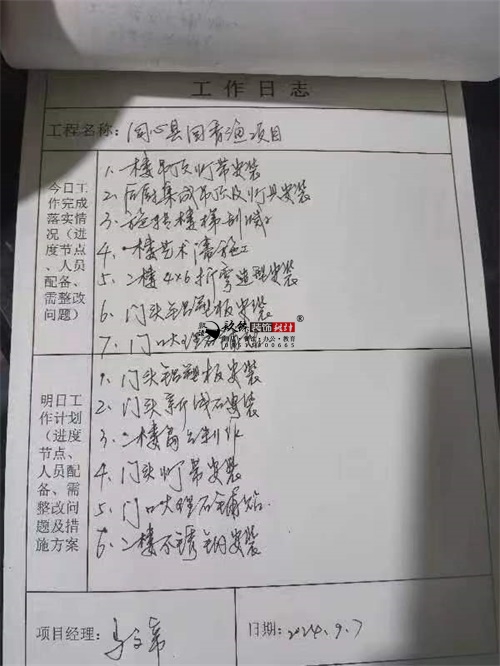 工作日志
工程名称: 同心县回香渔项目
今日工作完成落实情况(进度节点、人员配备、需整改问题)
1、一楼吊顶灯带安装
2、后厨集成吊顶及灯具安装
3、楼梯
4、一楼艺术漆施工
5、二楼4×6折弯造型安装
6、门头铝塑板安装
7、门口大理石
装饰设计
®
办公·教育
明日工作计划(进度节点、人员配备、需整改问题及措施方案
1、门头铝塑板安装
2、门头石安装
3、二楼制作
4、门头灯带安装
5、门口大理石铺贴
6、二楼不锈钢安装
项目经理:
日期: 2024.9.7